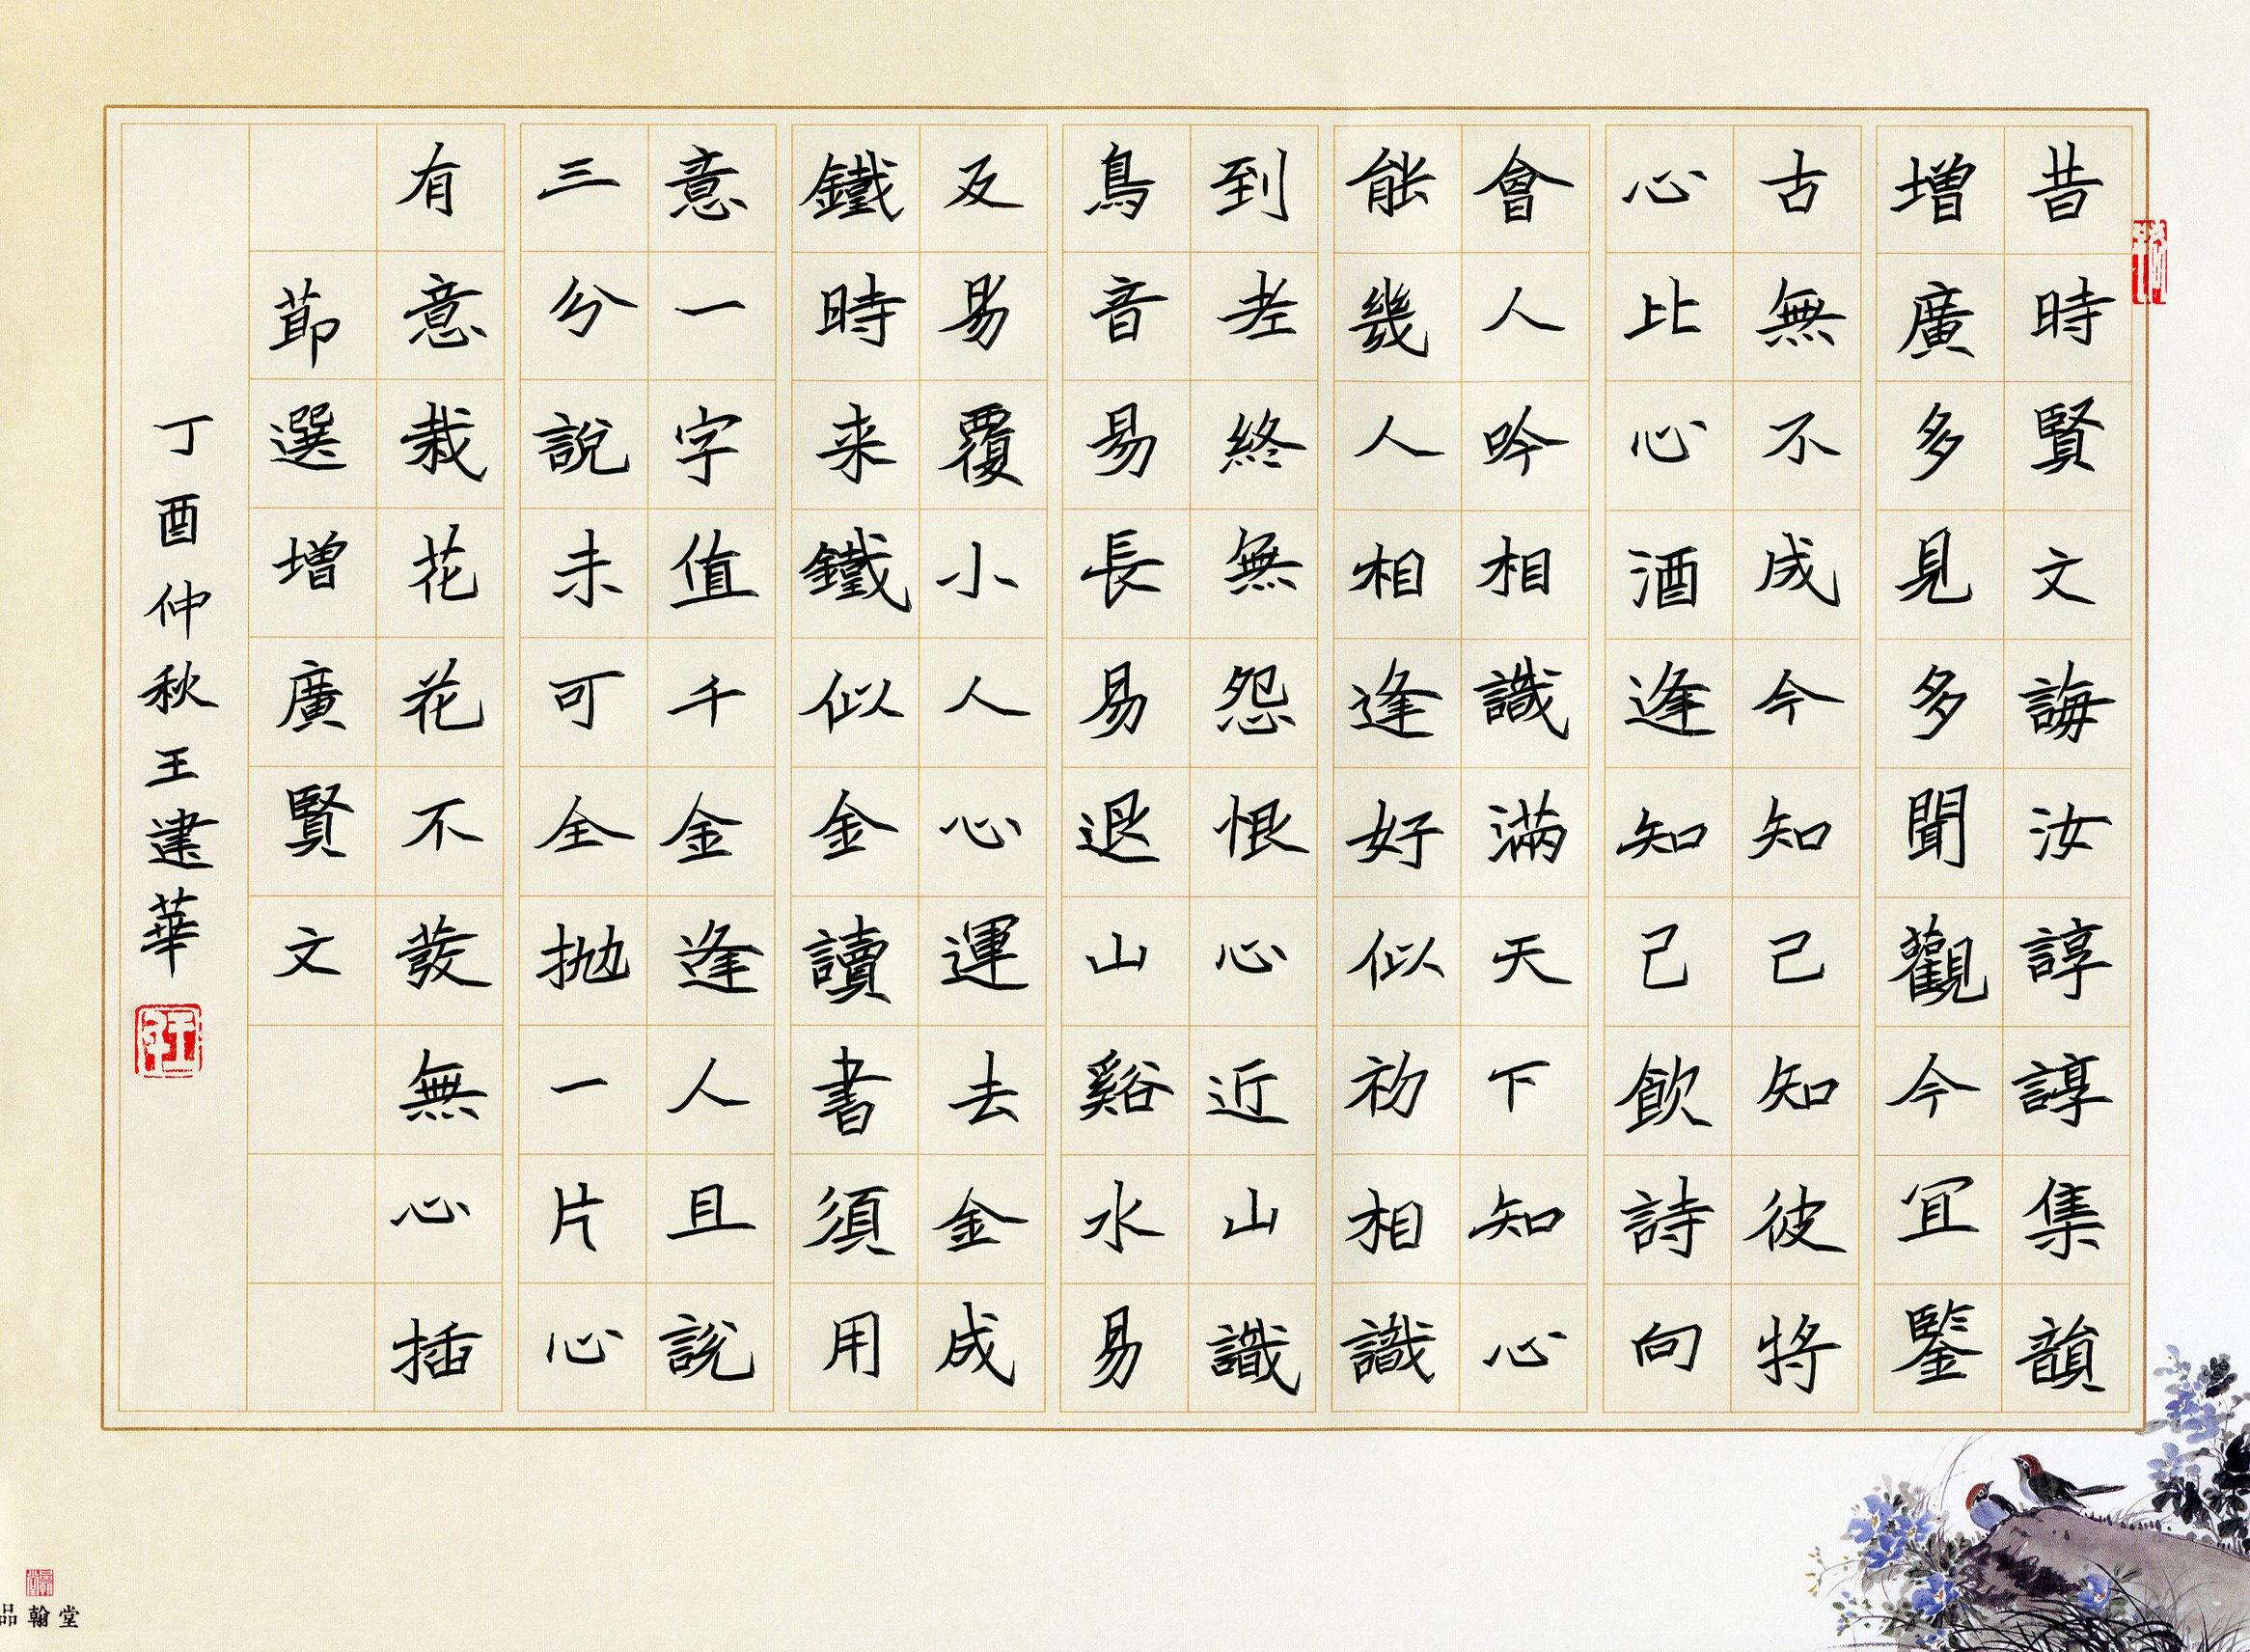 昔時賢文誨汝諄諄集韻
增廣多見多聞觀今宜鑒
古無不成今知己知彼將
心比心酒逢知己飲詩向
會人吟相識滿天下知心
能幾人相逢好似初相識
到老終無怨恨心近山識
鳥音易長易退山谿水易
反易覆小人心運去金成
鐵時来鐵似金讀書須用
意一字值千金逢人且說
三分說未可全抛一片心
有意栽花花不發無心插
節選增廣賢文
丁酉仲秋王建華
品翰堂